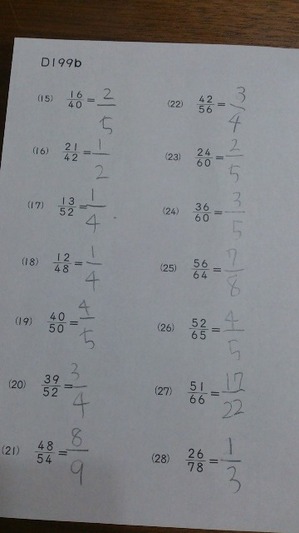 D199b
(15) 16/40 = 2/5
(16) 21/42 = 1/2
(17) 13/52 = 1/4
(18) 12/48 = 1/4
(19) 40/50 = 4/5
(20) 39/52 = 3/4
(21) 48/54 = 8/9
(22) 42/56 = 3/4
(23) 24/60 = 2/5
(24) 36/60 = 3/5
(25) 56/64 = 7/8
(26) 52/65 = 4/5
(27) 51/66 = 17/22
(28) 26/78 = 1/3